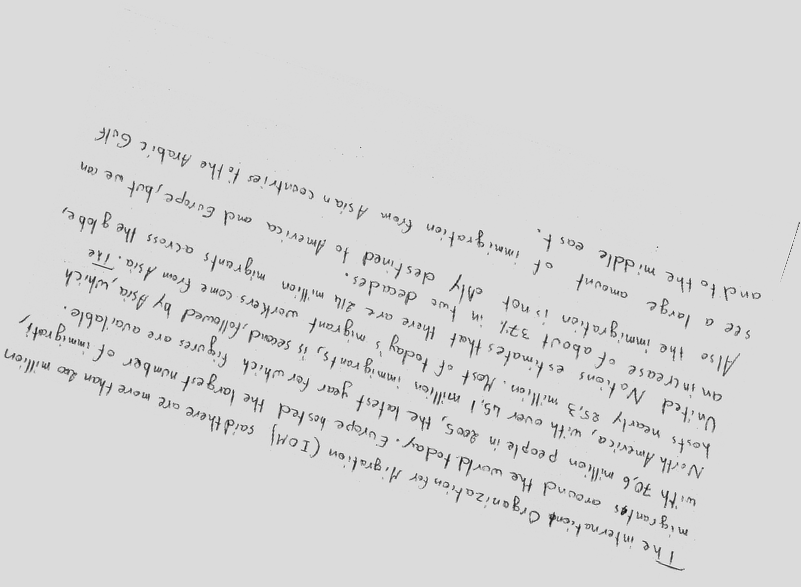 The international Organization for Migration (IOM) said there are more than 200 million
migrants around the world today. Europe hosted the largest number of immigrati,
with 70,6 million people in 2005, the latest year for which figures are available.
North America, with over 45,1 million immigrants, is second, followed by Asia, which
hosts nearly 25,3 million. Most of today's migrant workers come from Asia. The
United Nations estimates that there are 214 million migrants across the globe,
an increase of about 37% in two decades.
Also the immigration is not oly destined to America and Europe, but we can
see a large amount of immigration from Asian countries to the Arabic Gulf
and to the middle east.